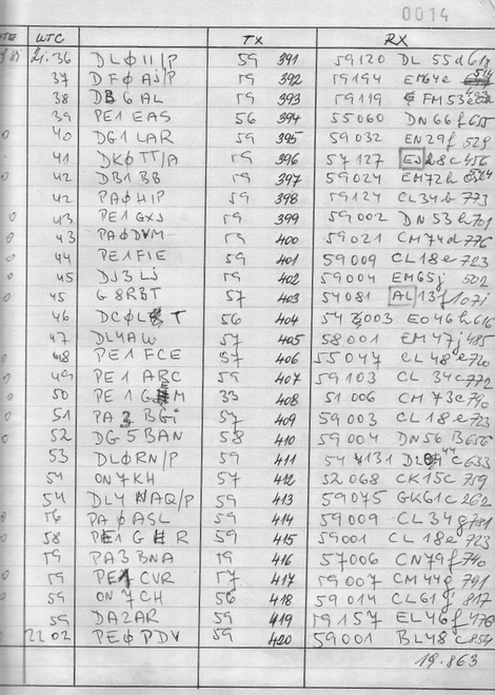 0014
WTC TX RX
21.36 DLØ11/P 59 391 59120 DL 55d
37 DFØAJ/P 59 392 59194 EM64e
38 DB6AL 59 393 59119 FM53
39 PE1EAS 56 394 55060 DN66f655
40 DG1LAR 59 395 59032 EN29f 529
41 DKØTT/A 59 396 57127 EJ28c456
42 DB1BB 59 397 59024 EM72h
42 PAØHIP 59 398 59124 CL34b 773
43 PE1GXJ 59 399 59002 DN53h701
43 PAØDVM 59 400 59021 CM74d776
44 PE1FIE 59 401 59009 CL18e723
45 DJ3LJ 59 402 59004 EM65j 502
45 G8RBT 57 403 54081 AL13f107i
46 DCØL T 56 404 54 003 EO46h616
47 DL4AW 57 405 58001 EM47j485
48 PE1FCE 57 406 55047 CL48e720
49 PE1ARC 59 407 59103 CL34c772
50 PE1 M 33 408 51006 CM73e
51 PA3BGi 57 409 59003 CL18e723
52 DG5BAN 58 410 59004 DN56B656
53 DLØRN/P 59 411 54 131 C633
54 ON7KH 57 412 52068 CK15C 759
54 DL4NAQ/P 59 413 59075 GK61c262
56 PAØASL 59 414 59009 CL34g781
58 PE1GER 59 415 59001 CL18e723
59 PA3BNA 59 416 57006 CN79f740
59 PE1CVR 57 417 59007 CM44g 791
59 ON7CH 56 418 59014 CL61j 817
59 DA2AR 59 419 59157 EL46f476
22 02 PEØPDV 59 420 59001 BL48c854
19.863